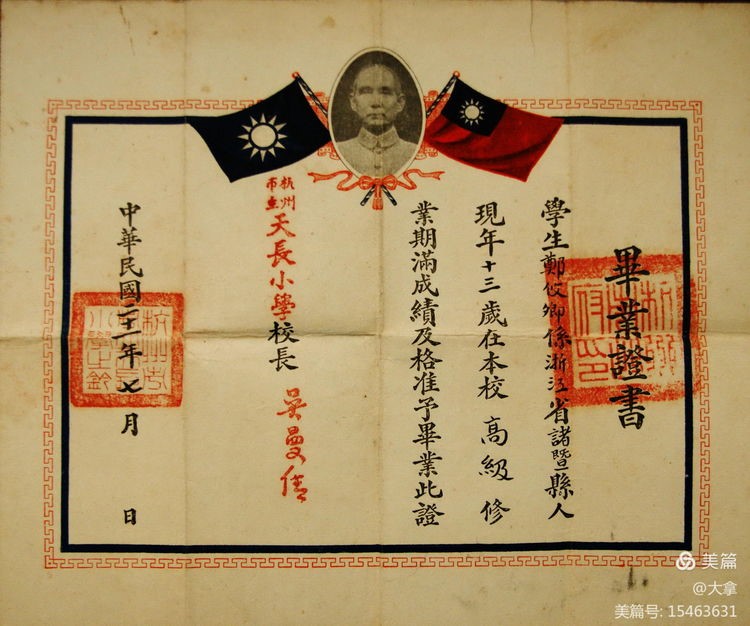 畢業證書
學生鄭攸卿係浙江省諸暨縣人
現年十三歲在本校高級修
業期滿成績及格准予畢業此證
杭州市立天長小學校長吳曼倩
中華民國二十一年七月 日
美篇
@大拿
美篇号: 15463631